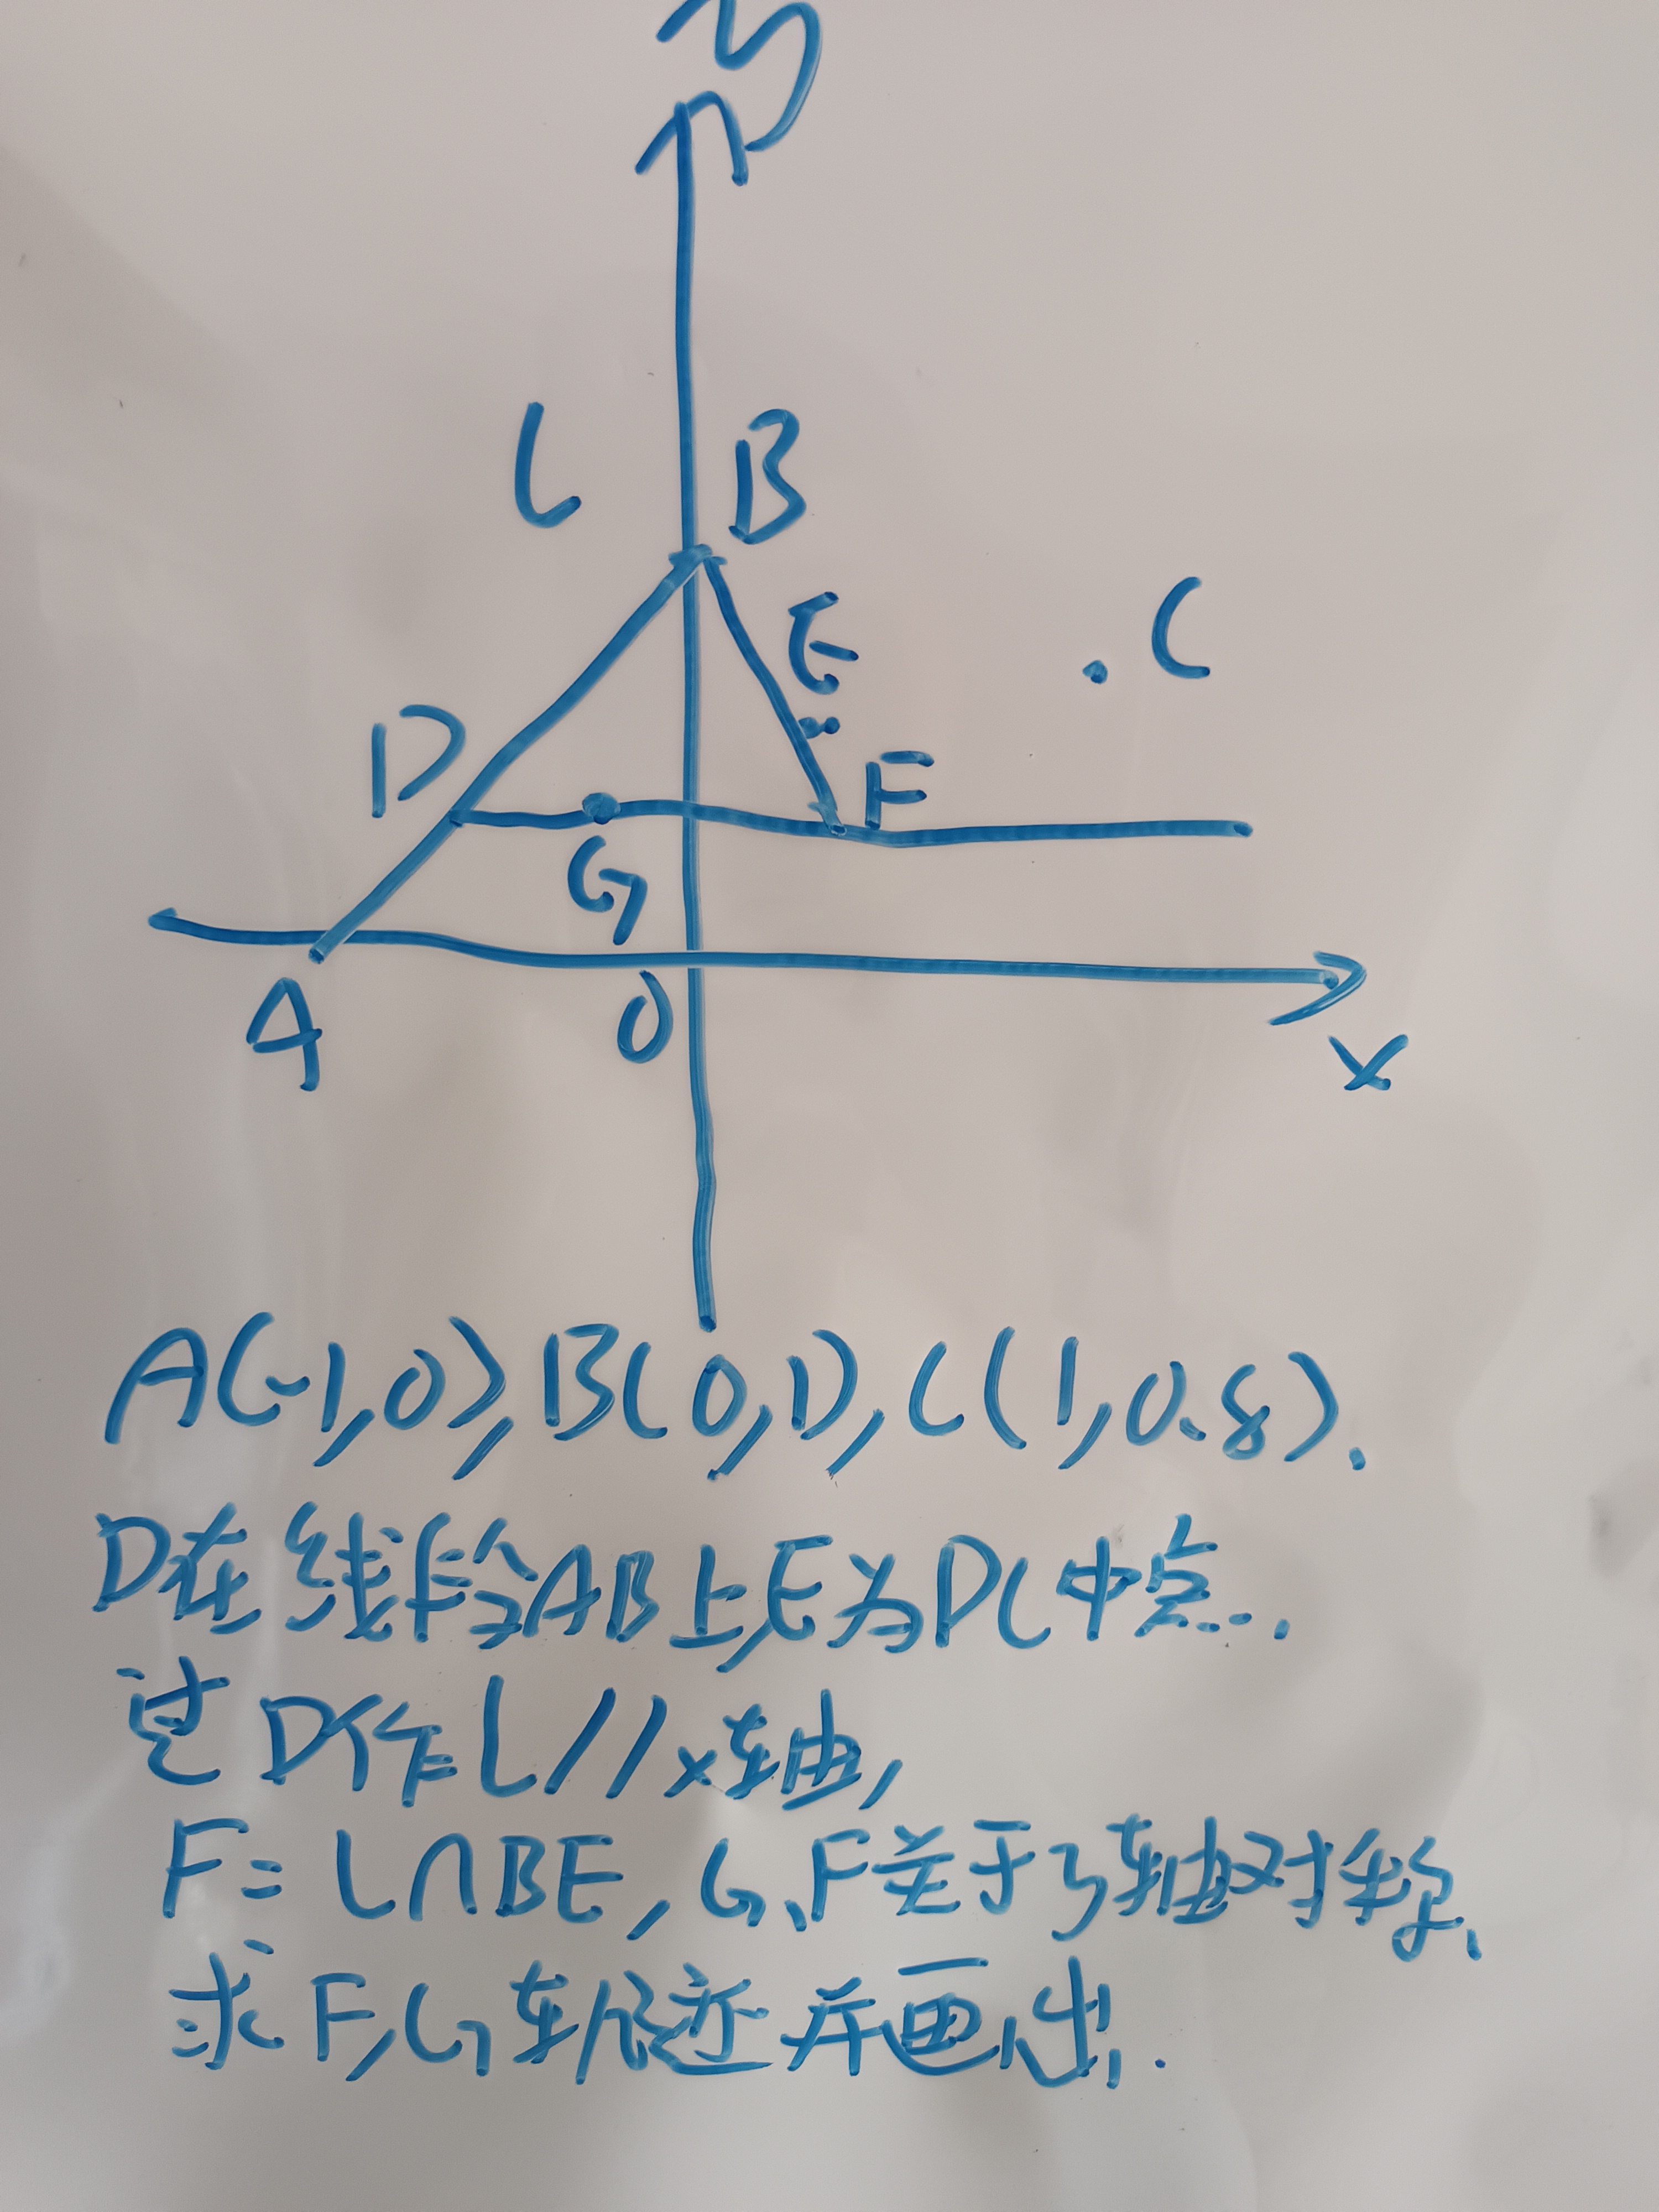 y
L
B
C
E
D
F
G
A
O
x
A(-1,0),B(0,1),C(1,0.8).
D在线段AB上,E为DC中点.
过D作L//x轴,
F=L∩BE,G、F关于y轴对称、
求F,G轨迹并画出.